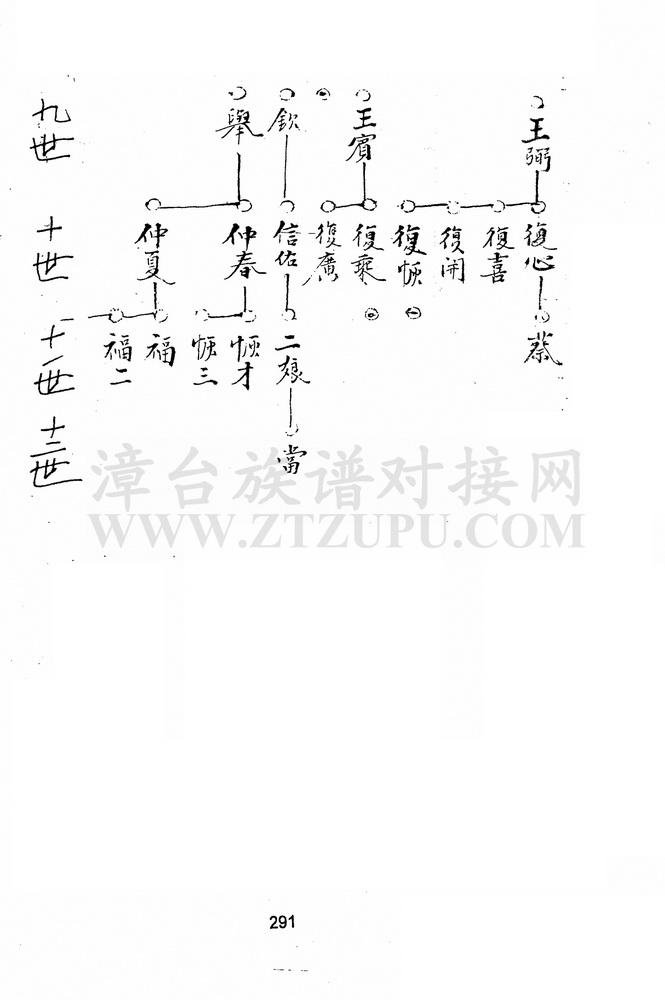 九世
王弼
王賓
欽
舉
十世
復心
復喜
復開
復恆
復乘
復廣
信佑
仲春
仲夏
十一世
蔡
二娘
恆才
恆三
福
福二
十二世
當
漳台族谱对接网
WWW.ZTZUPU.COM
291